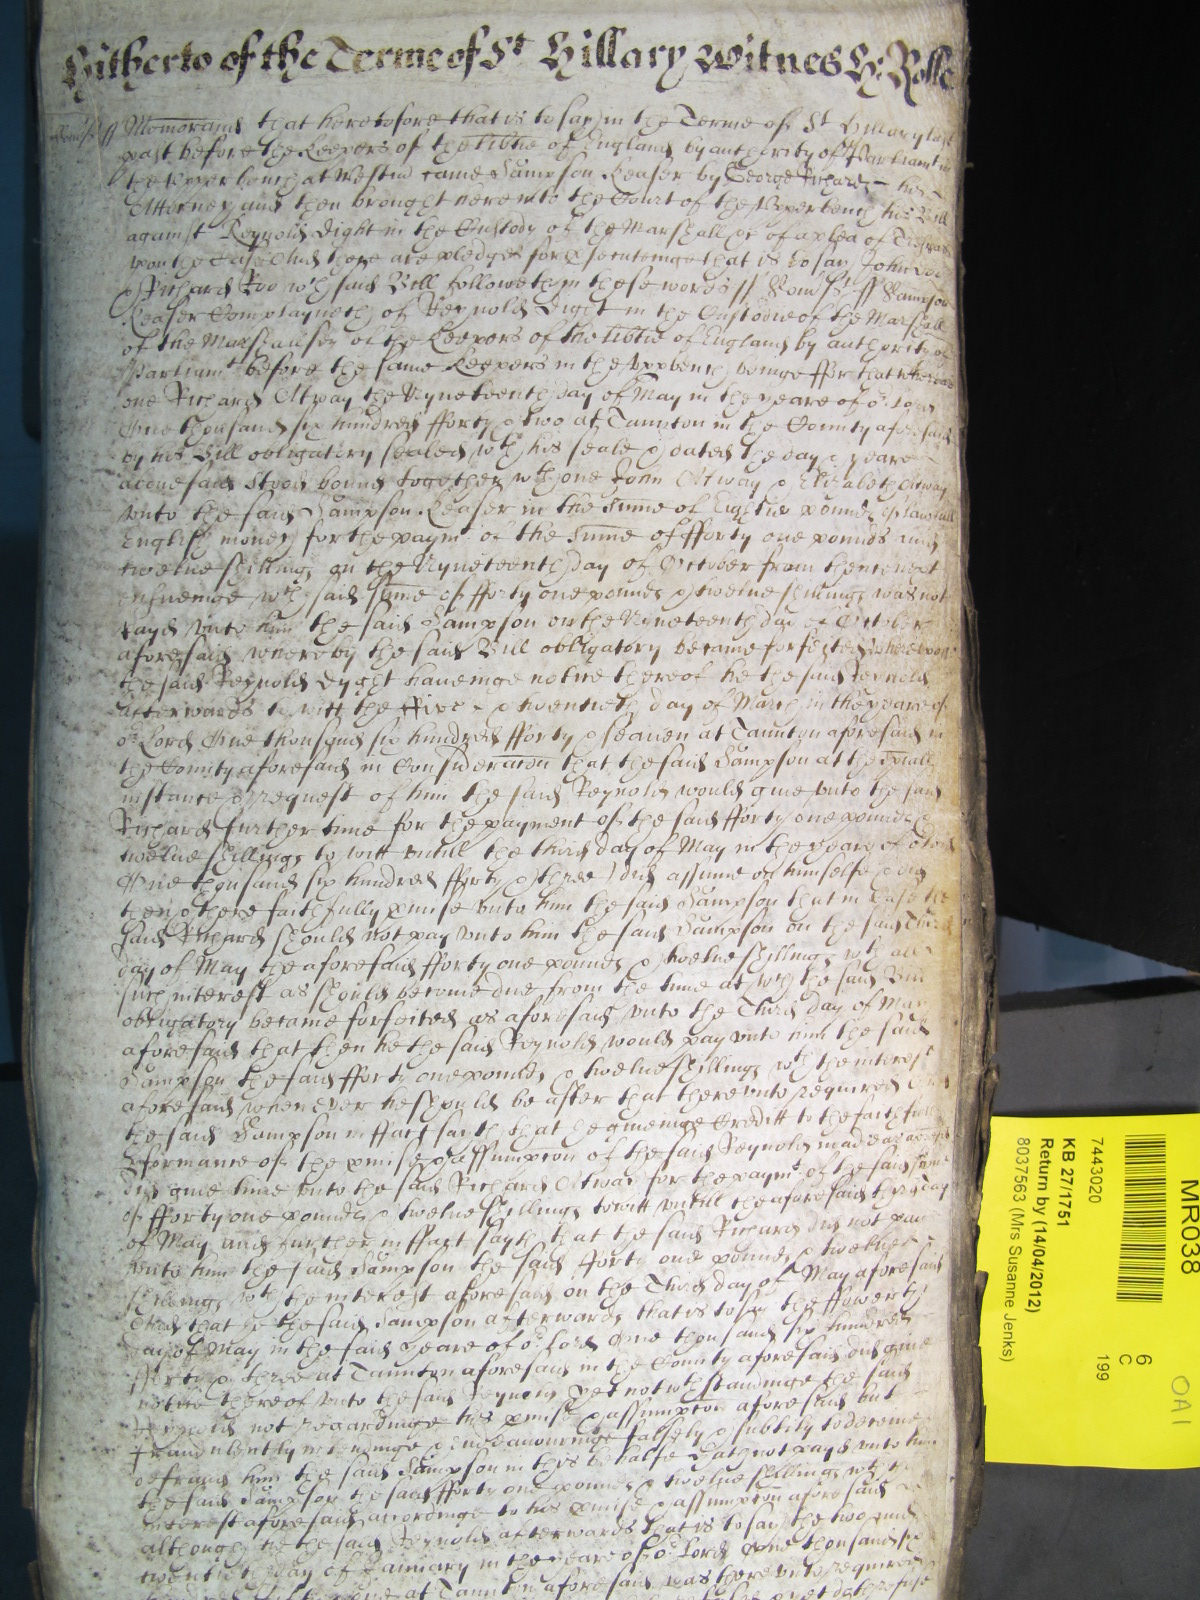 Hitherto of the Terme of St Hillary Witnes H: Rolle
Memorand that heretofore that is to say in the Terme of St Hillary last
past before the Keepers of the libtie of England by authority of Parliament in
the Vpper bench at Westm came Sampson Keaser by George Richards his
Attorney and then brought here into the Court of the Vpper bench his Bill
against Reynold Dight in the Custody of the Marshall &c of a plea of Trespas
vpon the Case And there are pledges for &secuteinge that is to say John Doe
& Richard Roo wch said Bill followeth in these words // Som'st ss Sampson
Keaser Complayneth of Reynold Dight in the Custodie of the Marshall
of the Marshalsey of the Keepers of the libtie of England by authority of
Parliamt before the same Keepers in the Vppbench beinge ffor that whereas
one Richard Otway the Nyneteenth day of May in the yeare of or Lord
One thousand six hundred fforty & two at Taunton in the County aforesaid
by his Bill obligatory sealed wth his seale & dated the day & yeare
aforesaid stood bound together wth one John Otway & Elizabeth Otway
vnto the said Sampson Keaser in the summe of Eightie pounds of lawfull
English money for the paymt of the summe of fforty one pounds and
twelue shillings on the Nyneteenth day of October from thence next
ensueinge wch said summe of fforty one pounds & twelue shillings was not
payd vnto him the said Sampson on the Nyneteenth day of October
aforesaid whereby the said Bill obligatory became forfeited wherevpon
the said Reynold Dyght haueinge notice thereof he the said Reynold
afterwards to witt the ffive & twentieth day of March in the yeare of
or Lord One thousand six hundred fforty & seauen at Taunton aforesaid in
the County aforesaid in Consideracon that the said Sampson at the spiall
instance & request of him the said Reynold would giue vnto the said
Richard further time for the payment of the said fforty one pounds &
twelue shillings to witt vntill the third day of May in the yeare of or Lord
One thousand six hundred fforty & three did assume on himselfe & did
then & there faithfully pmise vnto him the said Sampson that in Case the
said Richard should not pay vnto him the said Sampson on the said Third
day of May the aforesaid fforty one pounds & twelue shillings wth all
such interest as should become due from the time at wch the said Bill
obligatory became forfeited as aforesaid vnto the Third day of May
aforesaid that then he the said Reynold would pay vnto him the said
Sampson the said fforty one pounds & twelue shillings wth the interest
aforesaid whenever he should be after that therevnto required And
the said Sampson in ffact saith that he giueinge Creditt to the faithfull
pformance of the pmise & assumpcon of the said Reynold
did giue time vnto the said Richard Otway for the paymt of the said summe
of fforty one pounds & twelue shillings to witt vntill the aforesaid third day
of May and further in ffact sayth that the said Richard did not pay
vnto him the said Sampson the said fforty one pounds & twelue
shillings wth the interest aforesaid on the Third day of May aforesaid
And that he the said Sampson afterwards that is to say the ffowerth
day of May in the said yeare of or Lord One thousand six hundred
fforty & three at Taunton aforesaid in the County aforesaid did giue
notice thereof vnto the said Reynold yet notwthstandinge the said
Reynold not regardinge his pmise & assumpcon aforesaid but
fraudulently intendinge & endeauouringe falsely & subtlity to deceiue
& defraud him the said Sampson in this behalfe hath not payd vnto him
the said Sampson the said fforty one pounds & twelue shillings wth the
interest aforesaid accordinge to his pmise & assumpcon aforesaid
although he the said Reynold afterwards that is to say the two and
twentieth day of January in the yeare of or Lord One thousand six
at Taunton aforesaid was therevnto required
MR038
7443020
KB 27/1751
Return by (14/04/2012)
8037563 (Mrs Susanne Jenks)
6
C
199
OA1